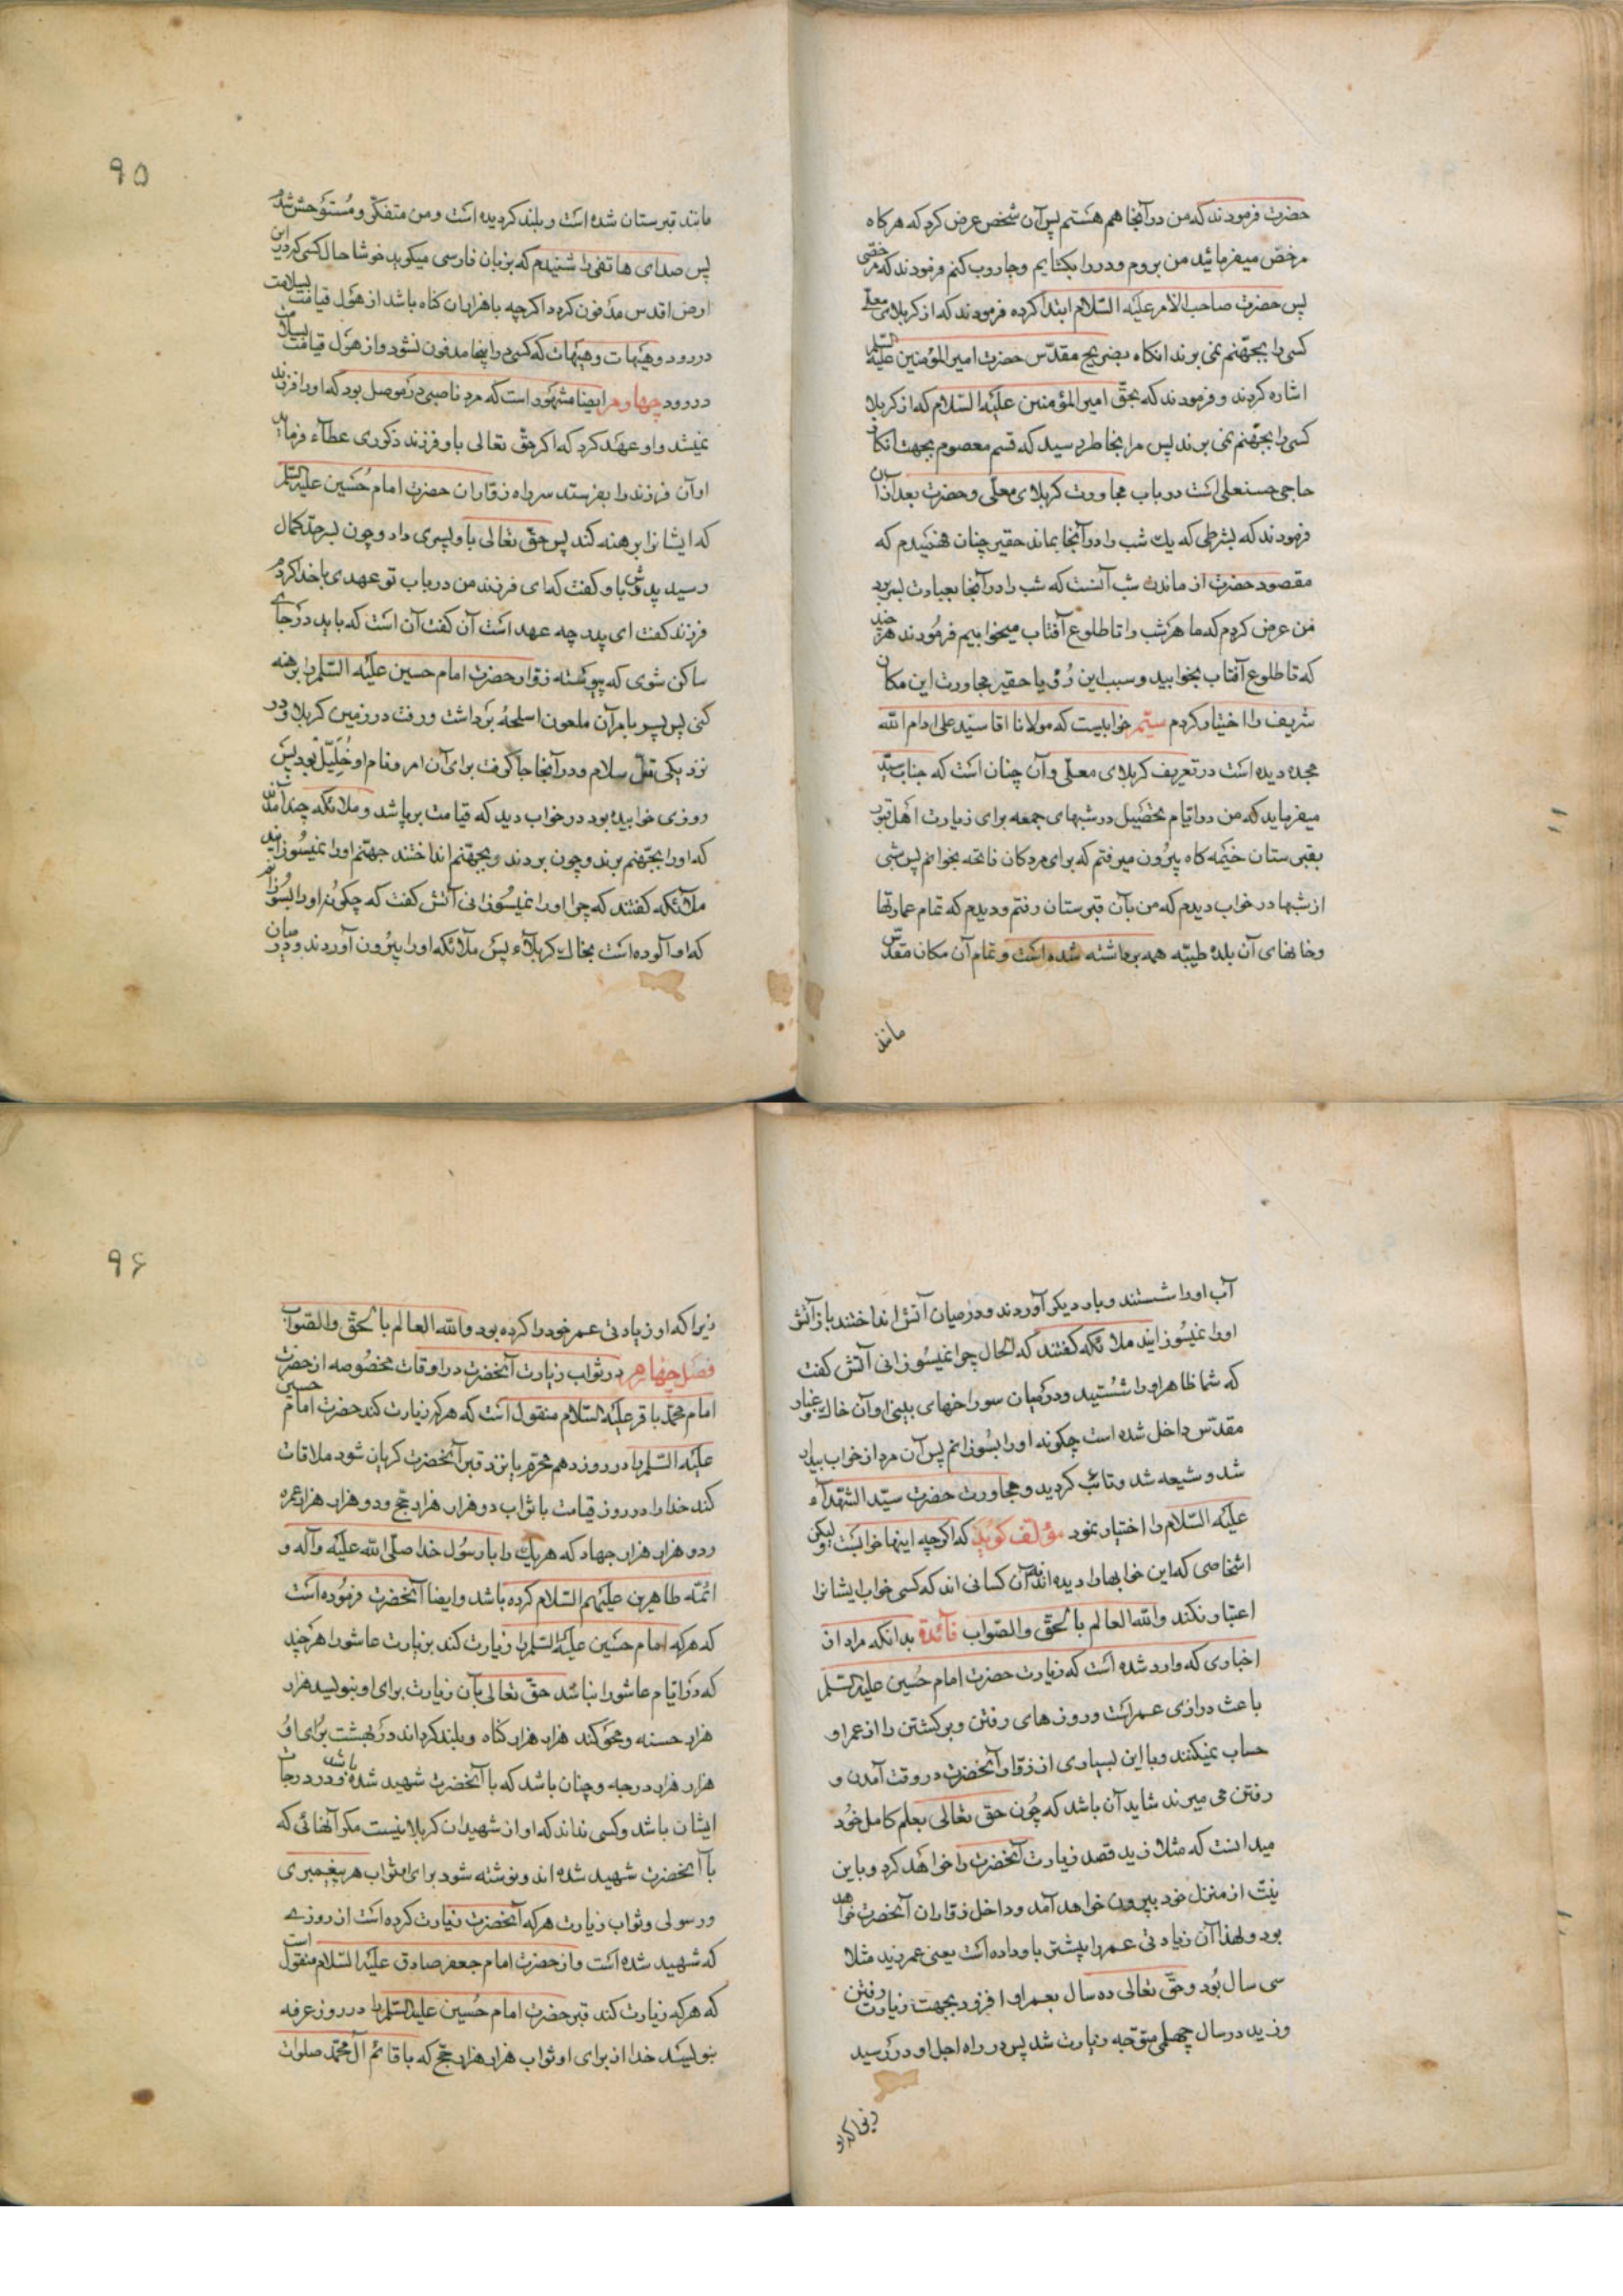 حضرت فرمودند که من در آنجا هم هستم پس آن شخص عرض کرد که هر کاه
مرخص میفرمائید من بروم و در را بکشایم و جاروب کنم فرمودند که مرخصی
پس حضرت صاحب الأمر علیه السّلام ابتدا کرده فرمودند که از کربلای معلّی
کسی را بجهّنم نمی برند انکاه بضریح مقدّس حضرت امیر المؤمنین علیه السّلم
اشاره کردند و فرمودند که بحقّ امیر المؤمنین علیه السّلام که از کربلا
کسی را بجهّنم نمی برند پس مرا بخاطر رسید که قسم معصوم بجهت انکار
حاجی حسنعلی است در باب مجاورت کربلای معلّی و حضرت بعد از آن
فرمودند که بشرطی که یک شب را در آنجا بماند حقیر چنان فهمیدم که
مقصود حضرت از ماندن شب آنست که شب را در آنجا بعبادت بسر برد
من عرض کردم که ما هر شب را تا طلوع آفتاب میخوابیم فرمودند هر چند
که تا طلوع آفتاب بخوابید و سبب این رؤیا حقیر مجاورت این مکان
شریف را اختیار کردم سیّم خوابیست که مولانا اقا سیّد علی ادام الله
مجده دیده است در تعریف کربلای معلّی و آن چنان است که جناب سیّد
میفرماید که من در ایّام تحصیل در شبهای جمعه برای زیارت اهل قبور
بقبرستان خیمه کاه بیرون میرفتم که برای مردکان فاتحه بخوانم پس شبی
از شبها در خواب دیدم که من بآن قبرستان رفتم و دیدم که تمام عمارتها
و خانهای آن بلدهٔ طیبّه همه برداشته شده است و تمام آن مکان مقدّس
مانند
۹۵
مانند قبرستان شده است و بلند کردیده است و من متفکّر و مستوحش شدم
پس صدای هاتفی را شنیدم که بزبان فارسی میکوید خوشا حال کسی که در این
ارض اقدس مدفون کردد اکرچه با هزاران کناه باشد از هول قیامت بسلامت
در رود و هیهات و هیهات که کسی در اینجا مدفون نشود و از هول قیامت بسلامت
در رود چهارم ایضا مشهور است که مرد ناصبی در موصل بود که او را فرزند
نمیشد و او عهد کرد که اکر حقّ تعالی باو فرزند ذکوری عطآء فرماید
او آن فرزند را بفرستد سر راه زوّاران حضرت امام حُسین علیه السّلم
که ایشانرا برهنه کند پس حقّ تعالی باو پسری داد و چون بسر حدّ کمال
رسید پدرش باو کفت که ای فرزند من در باب تو عهدی با خدا کردم
فرزند کفت ای پدر چه عهد است آن کفت آن است که باید در جائے
ساکن شوی که پیوسته زوّار حضرت امام حسین علیه السّلم را برهنه
کنی پس پسر بامر آن ملعون اسلحهٔ برداشت و رفت در زمین کربلا و در
نزدیکی تلّ سلام و در آنجا جا کرفت برای آن امر و نام او خُلَیّل بود پس
روزی خوابیده بود در خواب دید که قیامت برپا شد و ملائکه چند آمدند
که او را بجهّنم برند و چون بردند و بجهّنم انداختند جهنّم او را نمیسوزانید
ملآئکه کفتند که چرا او را نمیسوزانی آتش کفت که چکونه او را بسوزانم
که او آلوده است بخاک کربلآء پس ملآئکه او را بیرون آوردند و در میان
آب او را شستند و بار دیکر آوردند و در میان آتش انداختند باز آتش
او را نمیسوزانید ملائکه کفتند که الحال چرا نمیسوزانی آتش کفت
که شما ظاهر او را شستید و در میان سوراخهای بینی او آن خاک و غبار
مقدّس داخل شده است چکونه او را بسوزانم پس آن مرد از خواب بیدار
شد و شیعه شد و تائب کردید و مجاورت حضرت سیّد الشّهدآء
علیه السّلام را اختیار نمود مؤلّف کوید که اکرچه اینها خوابست و لیکن
اشخاصی که این خوابها را دیده اند آن کسانی اند که کسی خواب ایشانرا
اعتبار نکند والله العالم بالحقّ والصّواب فآئدة بدانکه مراد از
اخباری که وارد شده است که زیارت حضرت امام حُسین علیه السّلم
باعث درازی عمر است و روزهای رفتن و برکشتن را از عمر او
حساب نمیکنند و با این بسیاری از زوّار آنحضرت در وقت آمدن و
رفتن می میرند شاید آن باشد که چون حقّ تعالی بعلم کامل خود
میدانست که مثلا زید قصد زیارت آنحضرت را خواهد کرد و باین
نیّت از منزل خود بیرون خواهد آمد و داخل زوّاران آنحضرت خواهد
بود و لهذا آن زیادتی عمر را پیشتر باو داده است یعنی عمر زید مثلا
سی سال بود و حقّ تعالی ده سال بعمر او افزود بجهت زیارت رفتن
و زید در سال چهلم متوّجه زیارت شد پس در راه اجل او در رسید
زیرا که او
۹۶
زیرا که او زیادتی عمر خود را کرده بود والله العالم بالحقّ والصّواب
فصل چهارم در ثواب زیارت آنحضرت در اوقات مخصوصه از حضرت
امام محمّد باقر علیه السّلام منقول است که هر که زیارت کند حضرت امام حسین
علیه السّلم را در روز دهم محرّم یا نزد قبر آنحضرت کریان شود ملاقات
کند خدا را در روز قیامت با ثواب دو هزار هزار حجّ و دو هزار هزار عمره
و دو هزار هزار جهاد که هر یک را با رسُول خدا صلّی الله علیه وآله و
ائمّه طاهرین علیهم السّلام کرده باشد و ایضا آنحضرت فرموده است
که هر که امام حسین علیه السّلم را زیارت کند بزیارت عاشورا هر چند
که در ایّام عاشورا نباشد حقّ تعالی بآن زیارت برای او بنویسد هزار
هزار حسنه و محو کند هزار هزار کناه و بلند کرداند در بهشت برای او
هزار هزار درجه و چنان باشد که با آنحضرت شهید شده باشد و در درجات
ایشان باشد و کسی نداند که او از شهیدان کربلا نیست مکر آنهائی که
با آنحضرت شهید شده اند و نوشته شود برای او ثواب هر پیغمبری
و رسولی و ثواب زیارت هر که آنحضرت زیارت کرده است از روزے
که شهید شده است و از حضرت امام جعفر صادق علیه السّلام منقول است
که هر که زیارت کند قبر حضرت امام حُسین علیه السّلم را در روز عرفه
بنویسد خدا از برای او ثواب هزار هزار حجّ که با قائم آل محمّد صلوات